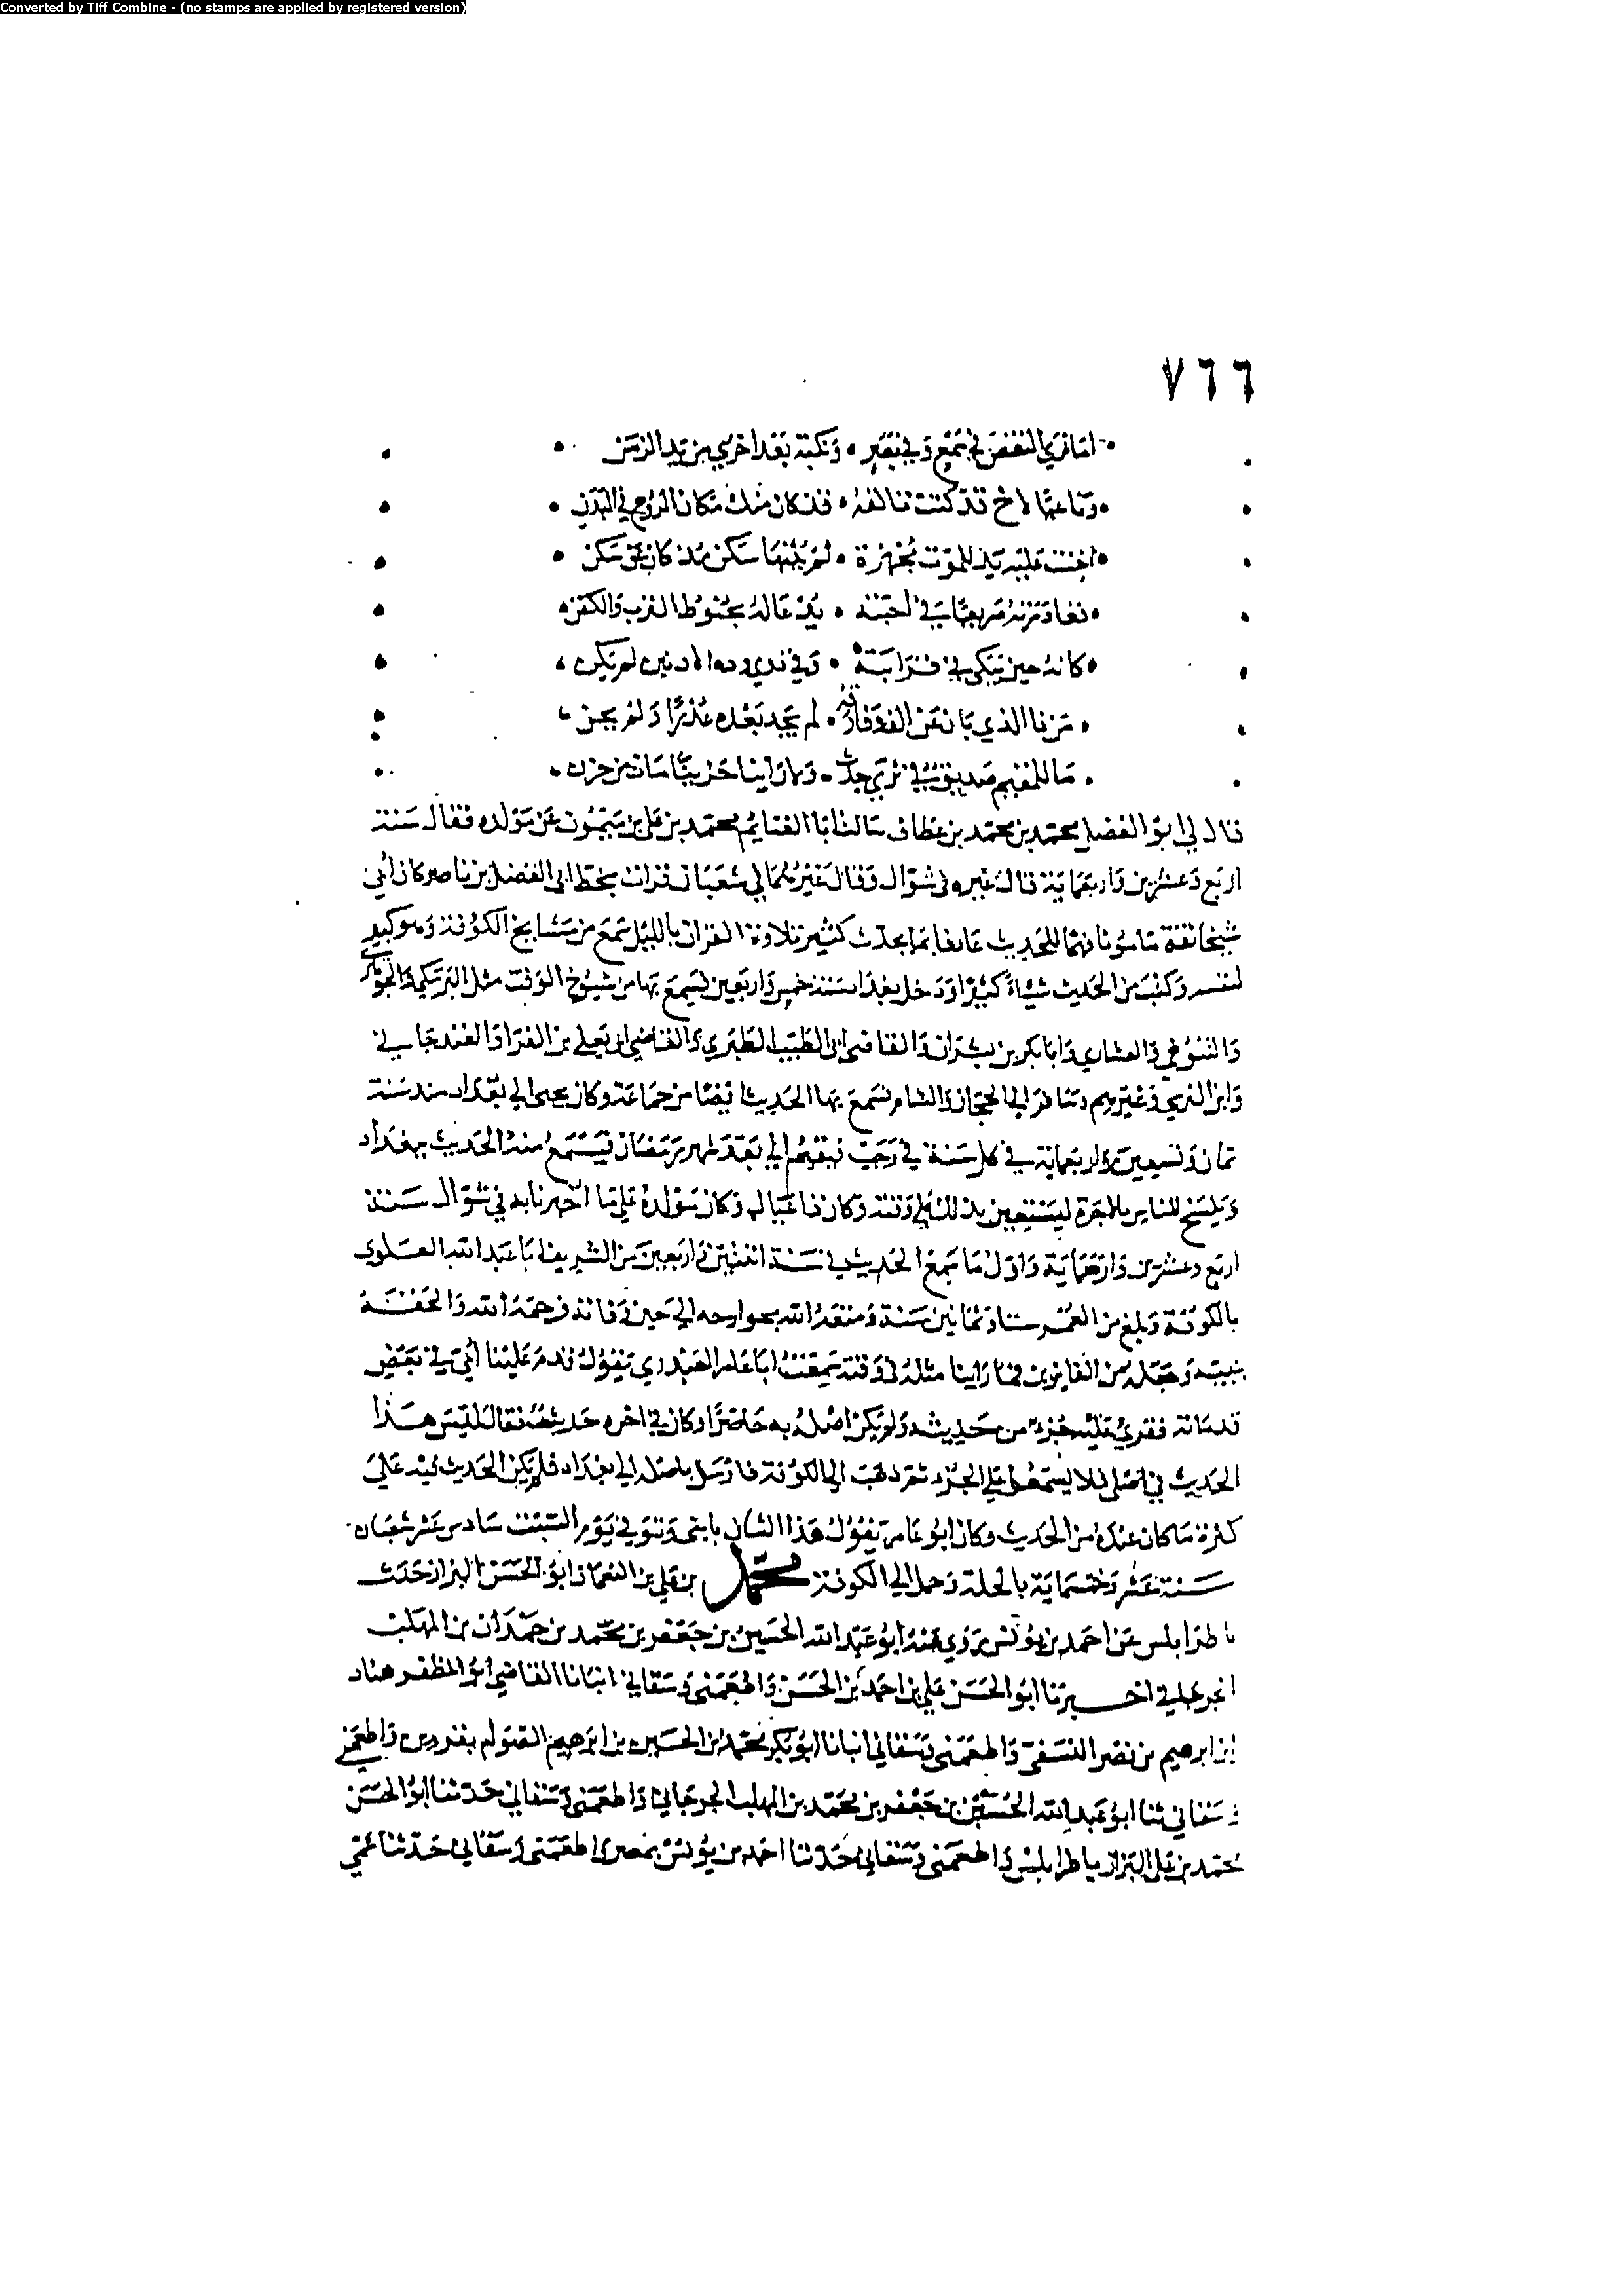 Converted by Tiff Combine - (no stamps are applied by registered version)
٧٦٦
اما ترى النقص في سمع وفي بصر ونكبة بعد اخرى من يد الزمن
وناعيا لاخ قد كنت تالفه قد كان منك مكان الروح في البدن
اخنت عليه يد للموت مجهزة لم يثنها سكن مذ كان عن سكن
فغادرته صريعا في احبته يدعا له بحنوط الترب والكفن
كانه حين يبكى في قرابته وفي ذوي وده الادنين لم يكن
من ذا الذي بان عن الف وفارقه لم يجد بعده غدرا ولم يخن
ما للمقيم صديق في ثرى جدث ولا راينا حزينا مات من حزن
قال لي ابو الفضل محمد بن محمد بن عطاف سالت ابا الغنايم محمد بن علي بن ميمون عن مولده فقال سنة
اربع وعشرين واربعماية قال غيره في شوال وقال غيرهما في شعبان قرات بخط ابي الفضل بن ناصر كان ابي
شيخا ثقة مامونا فهما للحديث عارفا بما يحدث كثير تلاوة القران بالليل سمع من مشايخ الكوفة وهو كبير
لنفسه وكتب من الحديث شيئا كثيرا ودخل بغداد سنة خمس واربعين فسمع بها من شيوخ الوقت مثل البرمكي والجوهري
والتنوخي والعشاري وابا بكر بن بشران والقاضي ابي الطيب الطبري والقاضي ابي يعلى بن الفرا والغندجاني
وابن النرسي وغيرهم وسافر الى الحجاز والشام فسمع بها الحديث ايضا من جماعة وكان يجي الى بغداد منذ سنة
ثمان وتسعين واربعماية في كل سنة في رجب فيقيم الى بعد شهر رمضان فيسمع منه الحديث ببغداد
وينسخ للناس بالاجرة ليستعين بذلك على وقته وكان ذا عيال وكان مولده على ما اخبرنا به في شوال سنة
اربع وعشرين واربعماية واول ما سمع الحديث في سنة اثنتين واربعين من الشريف ابا عبد الله العلوي
بالكوفة وبلغ من العمر ستا وثمانين سنة ومتعه الله بجوارحه الى حين وفاته فرحمه الله والحقه
بنبيه وجعله من الفايزين فما راينا مثله في وقته سمعت ابا عامر العبدري يقول قدم علينا ابي في بعض
قدماته فقري عليه جزء من حديثه ولم يكن اصله به حاضرا وكان في اخره حديث فقال ليس هذا
الحديث في اصلي فلا تسمعوا علي الجزء ثم ذهب الى الكوفة فارسل باصله الى بغداد فلم يكن الحديث فيه على
كثرة ما كان عنده من الحديث وكان ابو عامر يقول هذا الشان بابي وتوفي يوم السبت سادس عشر شعبان
سنة عشر وخمسماية بالحلة وحمل الى الكوفة محمد بن علي بن النعمان ابو الحسن البزاز حدث
باطرابلس عن احمد بن يونس روى عنه ابو عبد الله الحسين بن جعفر بن محمد بن حمدان بن المهلب
الجرجاني اخبرنا ابو الحسن علي بن احمد بن الحسن واطعمني وسقاني انبانا القاضي ابو المظفر هناد
ابن ابرهيم بن نصر النسفي واطعمني وسقاني انبانا ابو بكر محمد بن الحسين بن ابرهيم بقزوين واطعمني
وسقاني ثنا ابو عبد الله الحسين بن جعفر بن محمد بن المهلب الجرجاني واطعمني وسقاني حدثنا ابو الحسن
محمد بن علي البزاز باطرابلس واطعمني وسقاني حدثنا احمد بن يونس بمصر واطعمني وسقاني حدثنا عمي